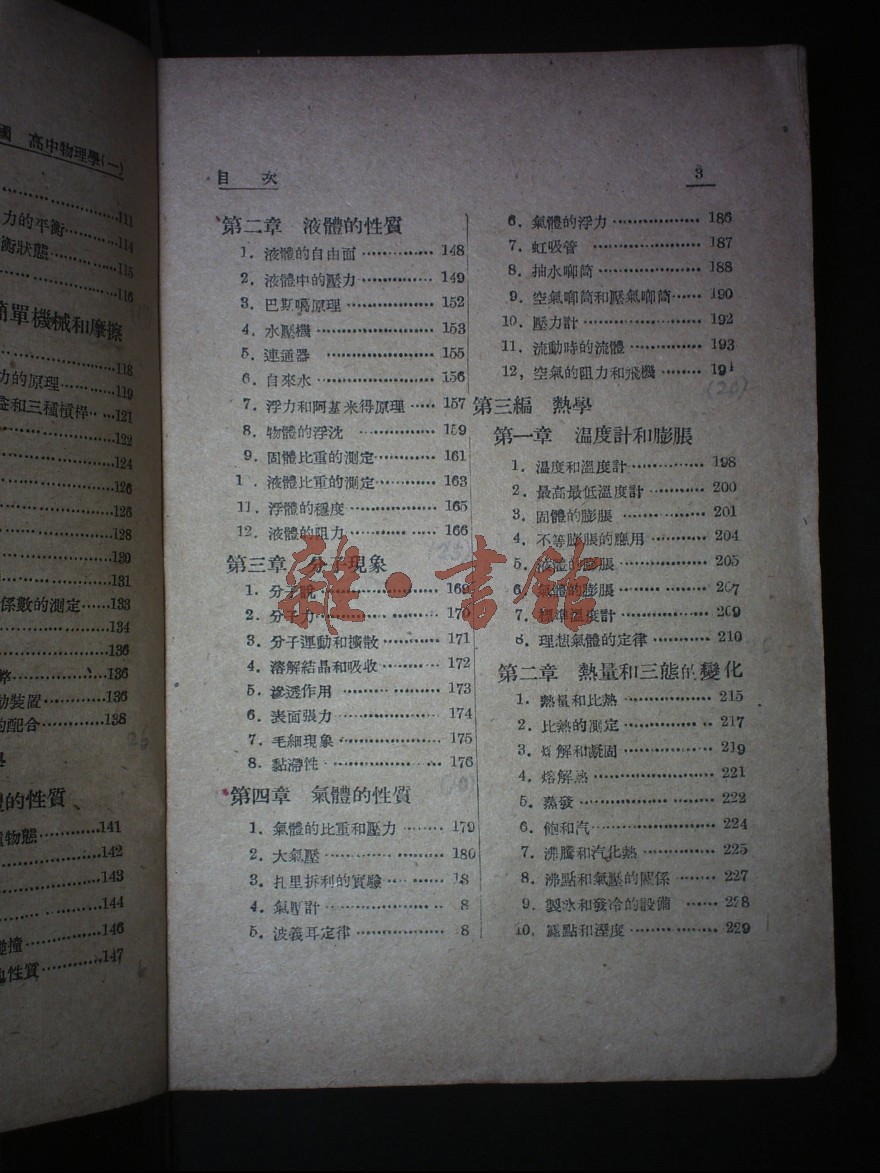 國 高中物理學(一)
111
力的平衡 114
衡狀態 115
116
簡單機械和摩擦
118
力的原理 119
和三種槓桿 121
122
124
126
126
128
130
131
係數的測定 133
134
136
136
動裝置 136
的配合 138
的性質
物態 141
142
143
144
撞 146
性質 147
目 次 3
第二章 液體的性質
1. 液體的自由面 148
2. 液體中的壓力 149
3. 巴斯噶原理 152
4. 水壓機 153
5. 連通器 155
6. 自來水 156
7. 浮力和阿基米得原理 157
8. 物體的浮沈 159
9. 固體比重的測定 161
1 . 液體比重的測定 163
11. 浮體的穩度 165
12. 液體的阻力 166
第三章 分子現象
1. 分子說 169
2. 分子力 170
3. 分子運動和擴散 171
4. 溶解結晶和吸收 172
5. 滲透作用 173
6. 表面張力 174
7. 毛細現象 175
8. 黏滯性 176
第四章 氣體的性質
1. 氣體的比重和壓力 179
2. 大氣壓 180
3. 扎里拆利的實驗 18
4. 氣壓計 8
5. 波義耳定律 8
6. 氣體的浮力 186
7. 虹吸管 187
8. 抽水唧筒 188
9. 空氣唧筒和壓氣唧筒 190
10. 壓力計 192
11. 流動時的流體 193
12, 空氣的阻力和飛機 19
(20)
第三編 熱學
第一章 温度計和膨脹
1. 温度和溫度計 198
2. 最高最低溫度計 200
3. 固體的膨脹 201
4. 不等膨脹的應用 204
5. 液體的膨脹 205
6. 氣體的膨脹 207
7. 標準溫度計 209
8. 理想氣體的定律 210
第二章 熱量和三態的變化
1. 熱量和比熱 215
2. 比熱的測定 217
3. 熔解和凝固 219
4. 熔解熱 221
5. 蒸發 222
6. 飽和汽 224
7. 沸騰和汽化熱 225
8. 沸點和氣壓的關係 227
9. 製冰和發冷的設備 228
10. 露點和溼度 229
雜·書館